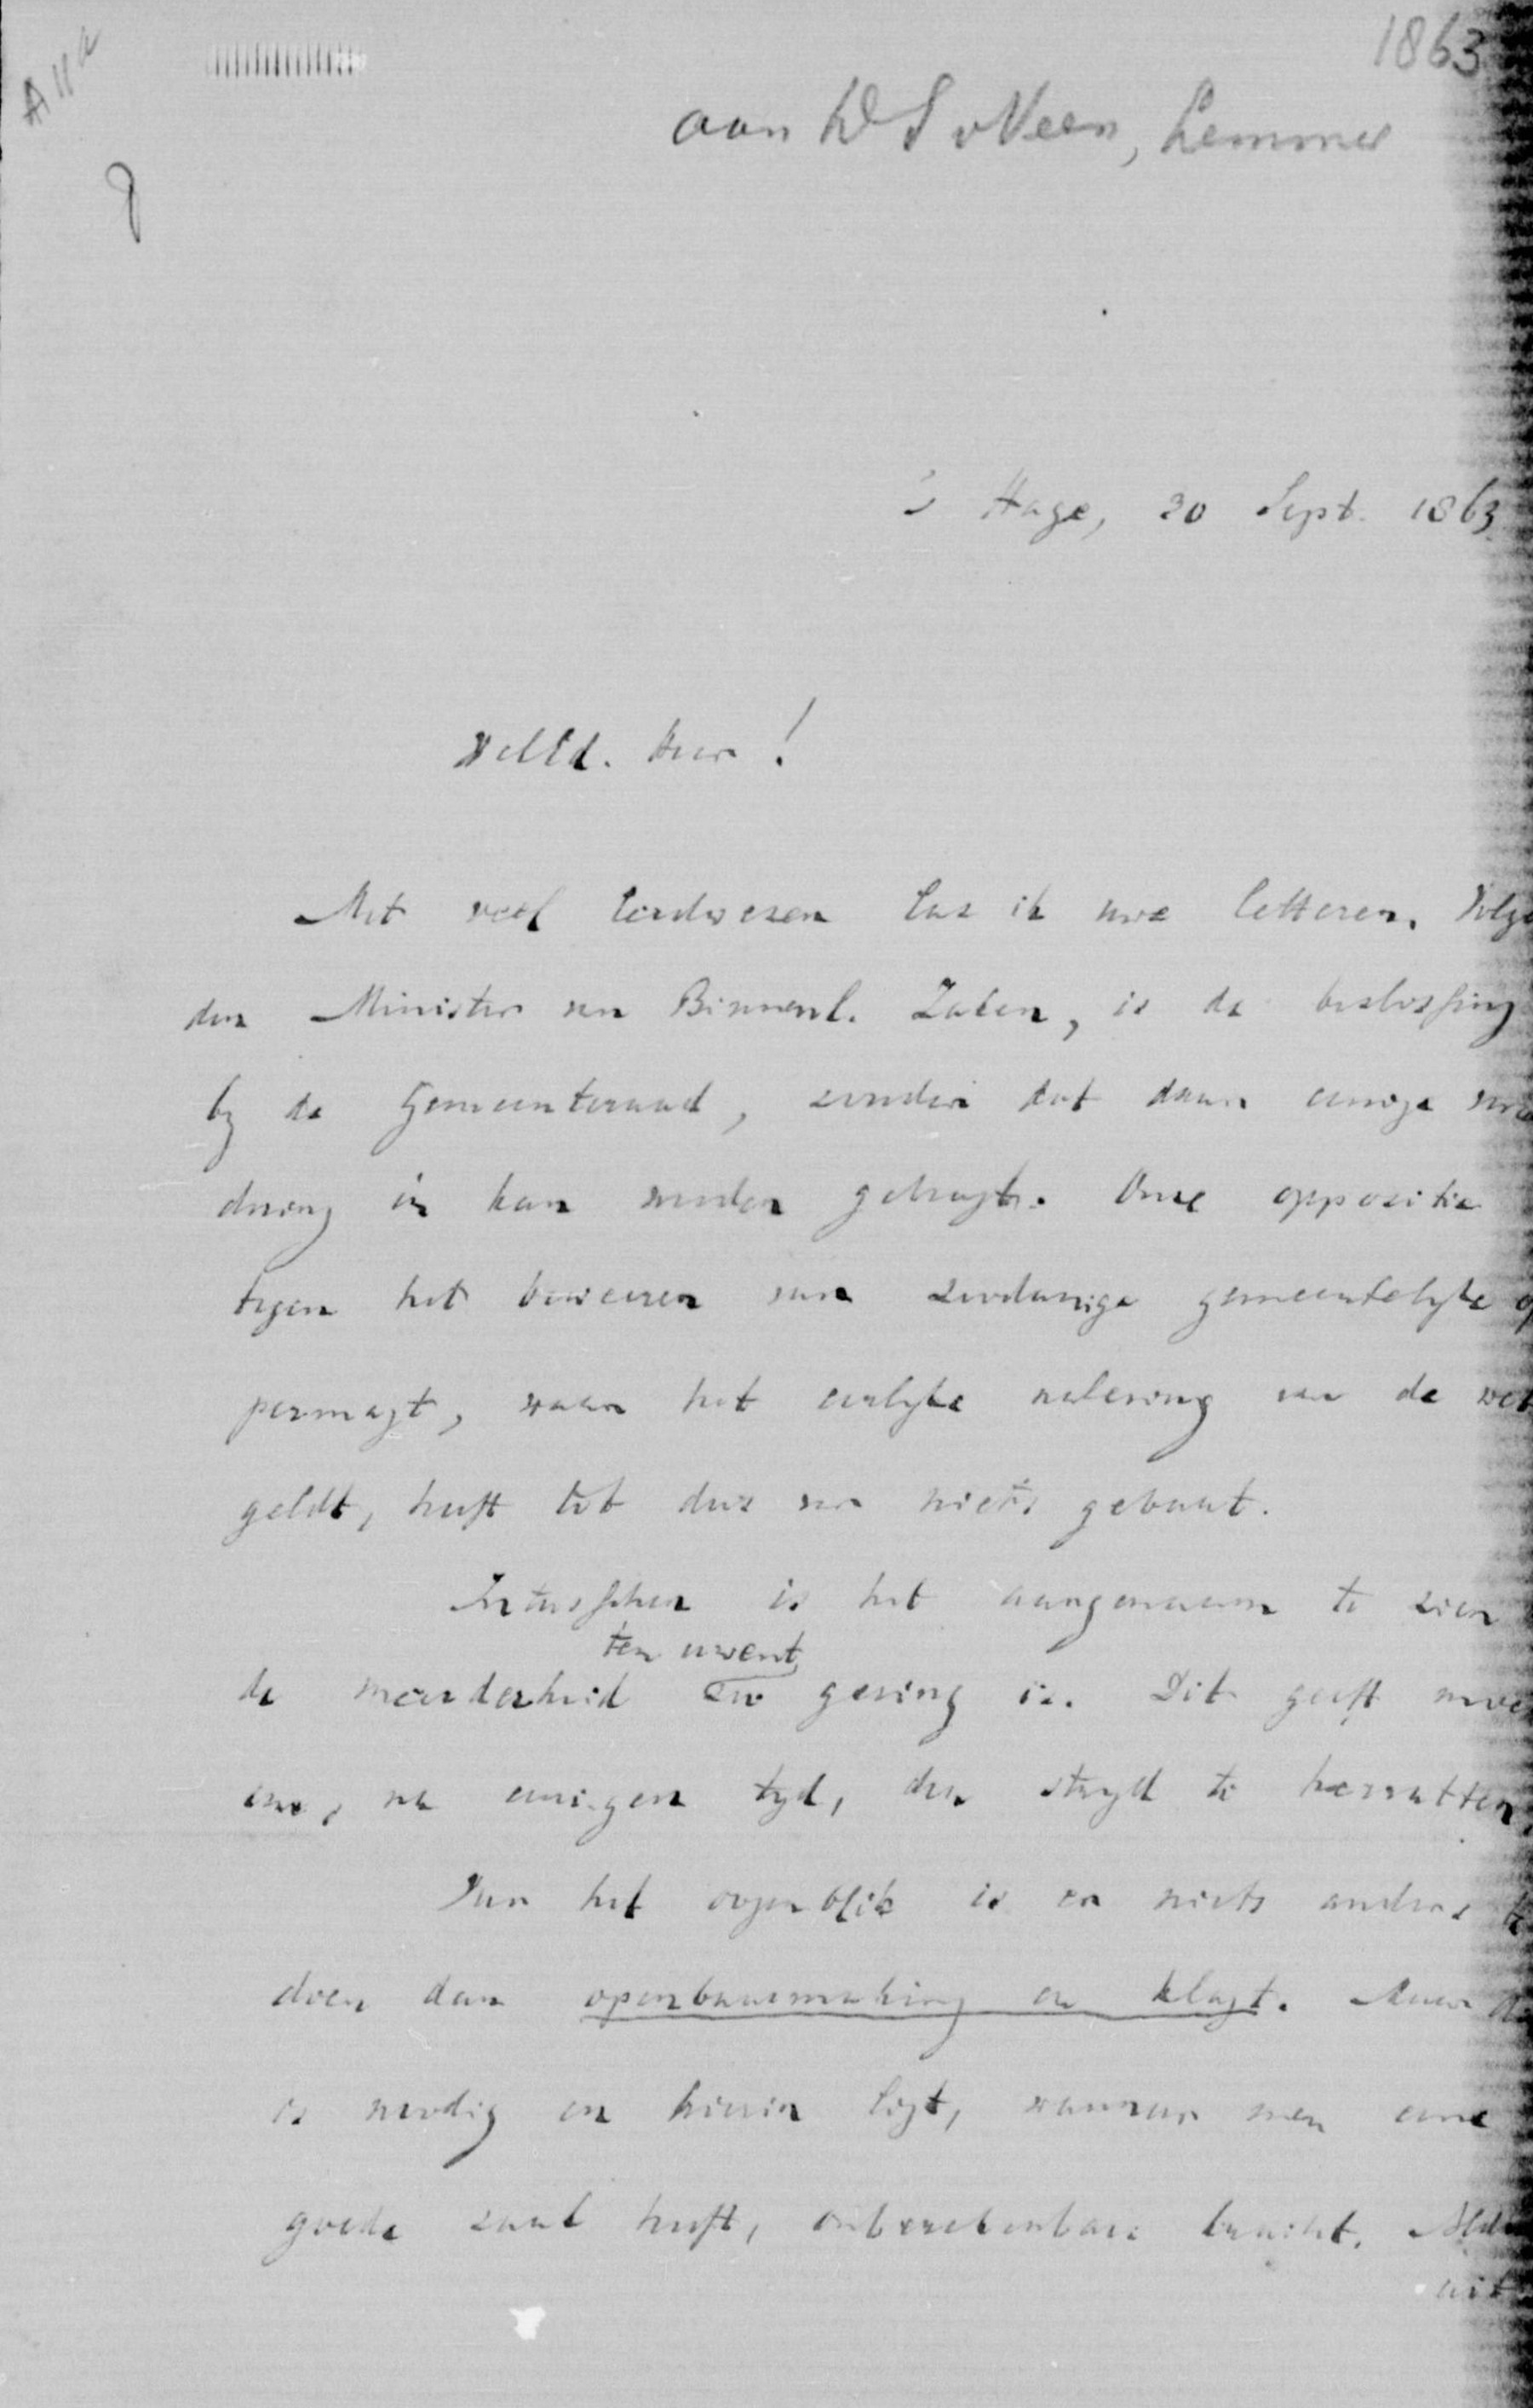 A11a
1863
aan W S v Veen, Lemmer
's Hage, 30 Sept. 1863
WelEd. Heer!
Met veel leedwezen las ik uwe letteren. Volge
den Minister van Binnenl. Zaken, is de beslissing
by de Gemeenteraad, zonder dat daar eenige
dering in kan worden gebragt. Onze oppositie
tegen het beweren van zoodanige gemeentelyke op
permagt, waar het eerlyke naleving van de wet
geldt, heeft tot dus ver niets gebaat.
Intusschen is het aangenaam te zien
ten uwent
de meerderheid zoo gering is. Dit geeft moed
om, na eenigen tyd, den stryd te hervatten.
Voor het oogenblik is er niets anders te
doen dan openbaarmaking en klagt. Maar
is noodig en hierin ligt, wanneer men eene
goede zaak heeft, onberekenbare kracht.
uit